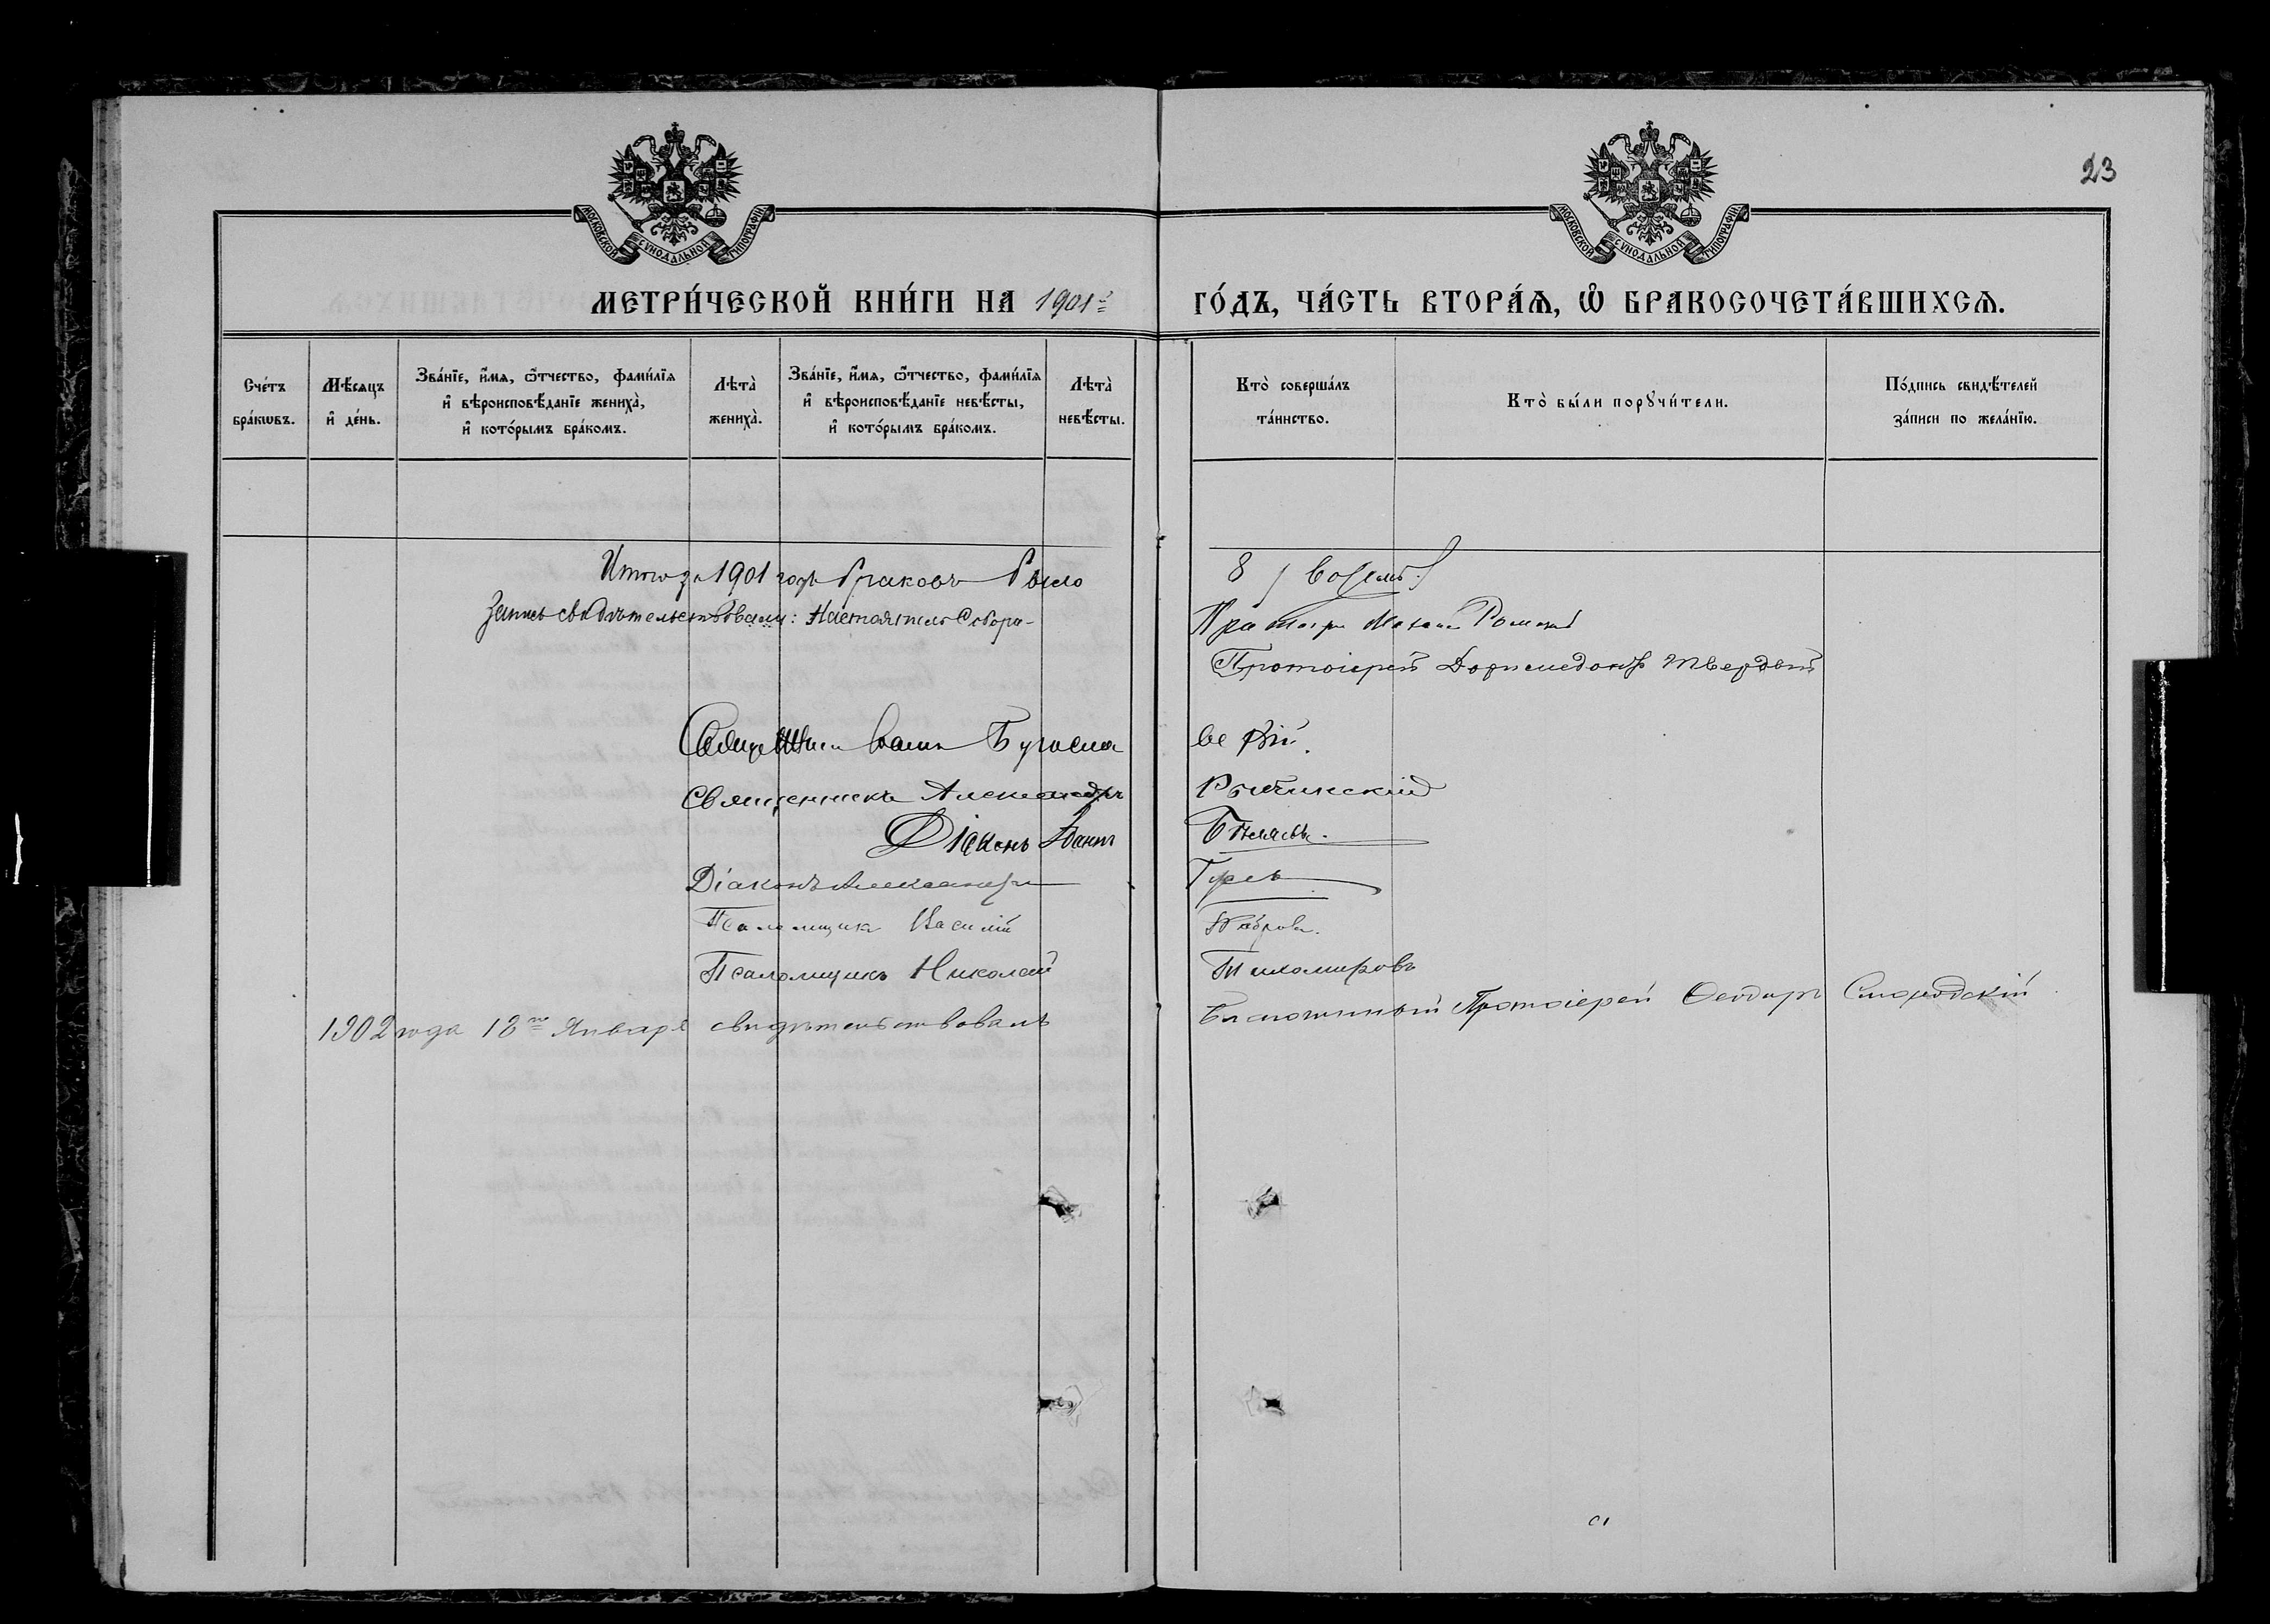 23
МОСКОВСКОЙ СѴНОДАЛЬНОЙ ТИПОГРАФІИ
МОСКОВСКОЙ СѴНОДАЛЬНОЙ ТИПОГРАФІИ
МЕТРИ́ЧЕСКОЙ КНИ́ГИ НА 1901й ГО́ДЪ, ЧА́СТЬ ВТОРА́Ѧ, Ѽ БРАКОСОЧЕТА́ВШИХСѦ.
Сче́тъ бра́кѡвъ.
Мѣ́сѧцъ и҆ де́нь.
Зва́нїе, и҆́мѧ, ѻ҆́тчество, фами́лїѧ и҆ вѣроисповѣ́данїе жениха̀, и҆ кото́рымъ бра́комъ.
Лѣта̀ жениха̀.
Зва́нїе, и҆́мѧ, ѻ҆́тчество, фами́лїѧ и҆ вѣроисповѣ́данїе невѣ́сты, и҆ кото́рымъ бра́комъ.
Лѣта̀ невѣ́сты.
Кто̀ соверша́лъ та́инство.
Кто̀ бы́ли порꙋчи́тели.
По́дпись свидѣ́телей за́писи по жела́нїю.
Итого за 1901 годъ браковъ было 8 /восемь/
Запись свидѣтельствовали: Настоятель Собора
Протоіерей Доримедонтъ Твердый
Священникъ Александръ
Діаконъ Іоаннъ Бѣляевъ.
Діаконъ Александръ
Псаломщикъ Василій
Псаломщикъ Николай Тихомировъ
1902 года 18го Января свидѣтельствовалъ Благочинный Протоіерей Ѳеодоръ